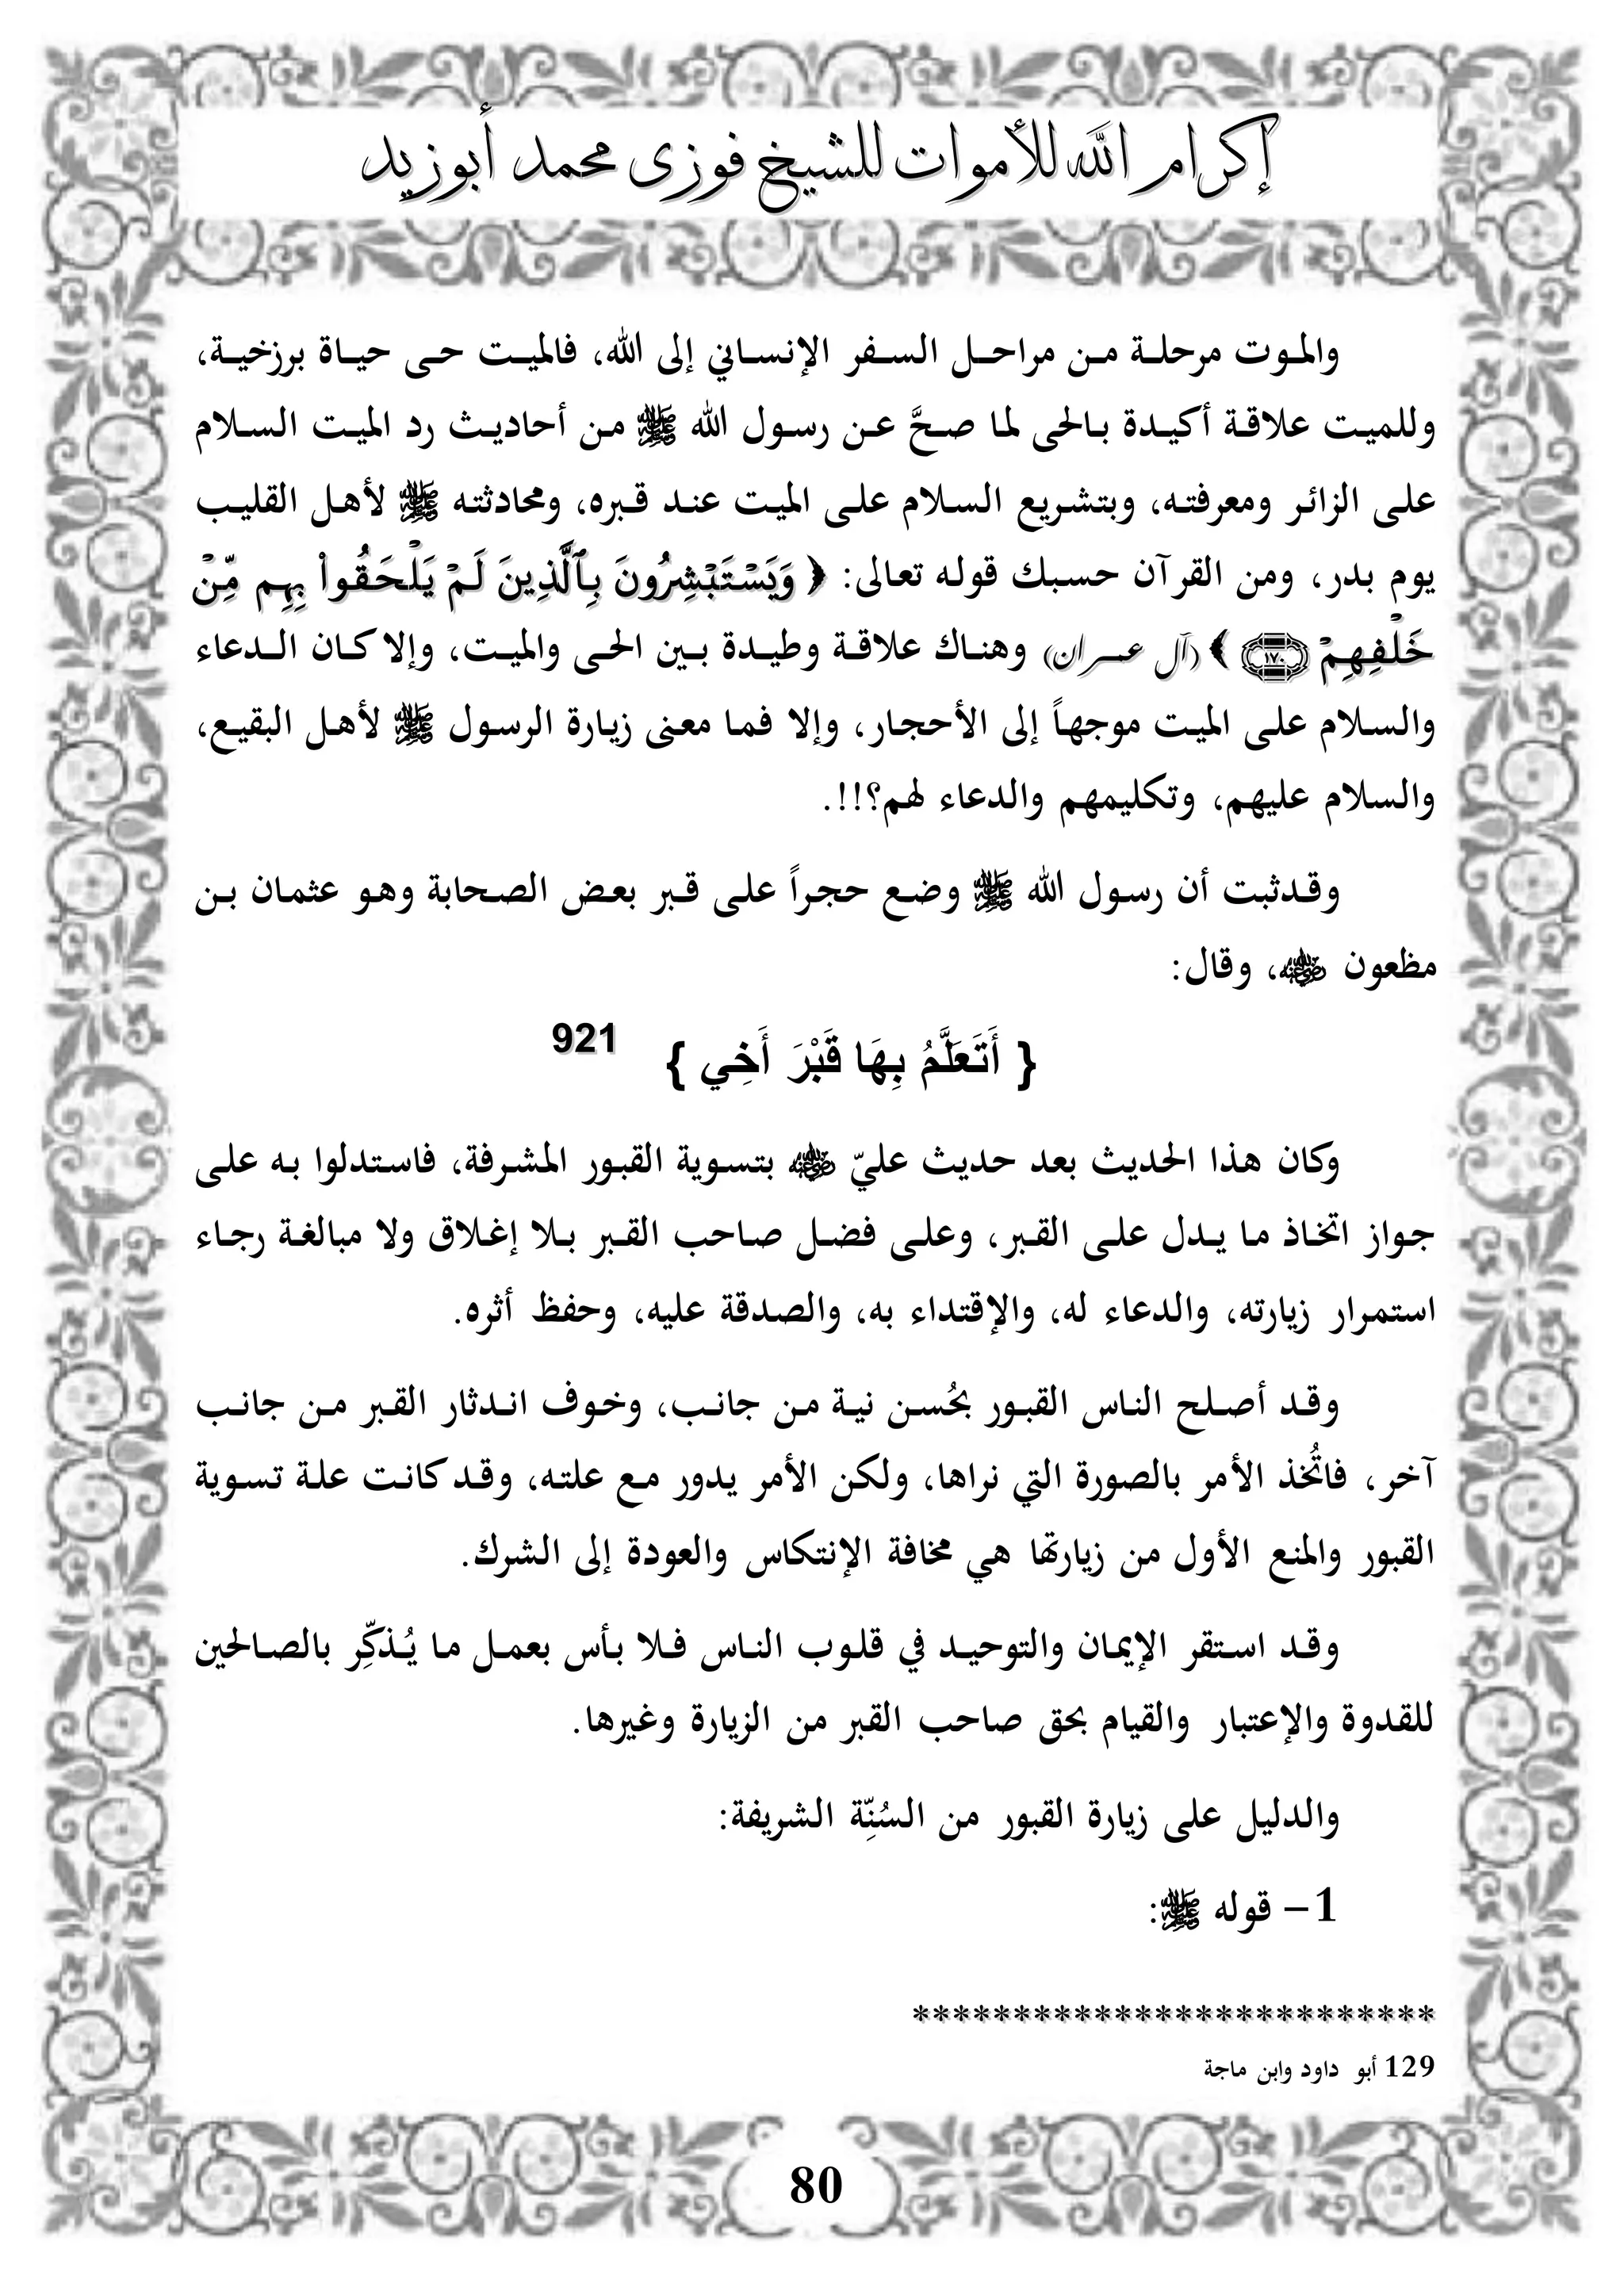 إكرام الله للأموات للشيخ فوزى محمد أبوزيد
والموت مرحلة من مراحل السفر الإنساني إلى الله، فالميت حى حياة برزخية،
وللميت علاقة أكيدة بالحى لما صحَّ عن رسول الله ﷺ من أحاديث رد الميت السلام
على الزائر ومعرفته، وبتشريع السلام على الميت عند قبره، ومحادثته ﷺ لأهل القليب
يوم بدر، ومن القرآن حسبك قوله تعالى: ﴿ وَيَسۡتَبۡشِرُونَ بِٱلَّذِينَ لَمۡ يَلۡحَقُواْ بِهِم مِّنۡ
خَلۡفِهِمۡ ١٧٠ ﴾ (آل عمران) وهناك علاقة وطيدة بين الحى والميت، وإلا كان الدعاء
والسلام على الميت موجهاً إلى الأحجار، وإلا فما معنى زيارة الرسول ﷺ لأهل البقيع،
والسلام عليهم، وتكليمهم والدعاء لهم؟!!.
وقدثبت أن رسول الله ﷺ وضع حجراً على قبر بعض الصحابة وهو عثمان بن
مظعون ﵁، وقال:
{ أَتَعَلَّمُ بِهَا قَبْرَ أَخِي } 921
وكان هذا الحديث بعد حديث عليّ ﵁ بتسوية القبور المشرفة، فاستدلوا به على
جواز اتخاذ ما يدل على القبر، وعلى فضل صاحب القبر بلا إغلاق ولا مبالغة رجاء
استمرار زيارته، والدعاء له، والإقتداء به، والصدقة عليه، وحفظ أثره.
وقد أصلح الناس القبور بحُسن نية من جانب، وخوف اندثار القبر من جانب
آخر، فاتُخذ الأمر بالصورة التي نراها، ولكن الأمر يدور مع علته، وقد كانت علة تسوية
القبور والمنع الأول من زيارتها هي مخافة الإنتكاس والعودة إلى الشرك.
وقد استقر الإيمان والتوحيد في قلوب الناس فلا بأس بعمل ما يُذكِّر بالصالحين
للقدوة والإعتبار والقيام بحق صاحب القبر من الزيارة وغيرها.
والدليل على زيارة القبور من السُنِّة الشريفة:
1– قوله ﷺ:
**************************
129 أبو داود وابن ماجة
80